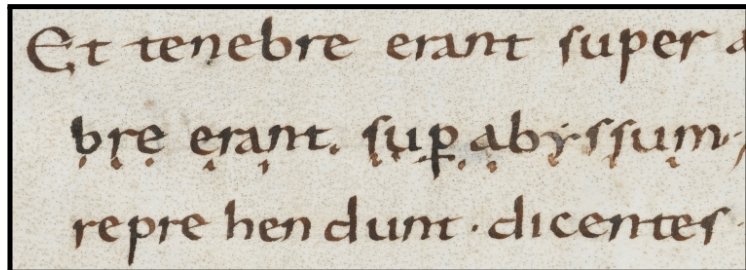 Et tenebre erant super a
bre erant. sup abyssum.
repre hendunt · dicentes